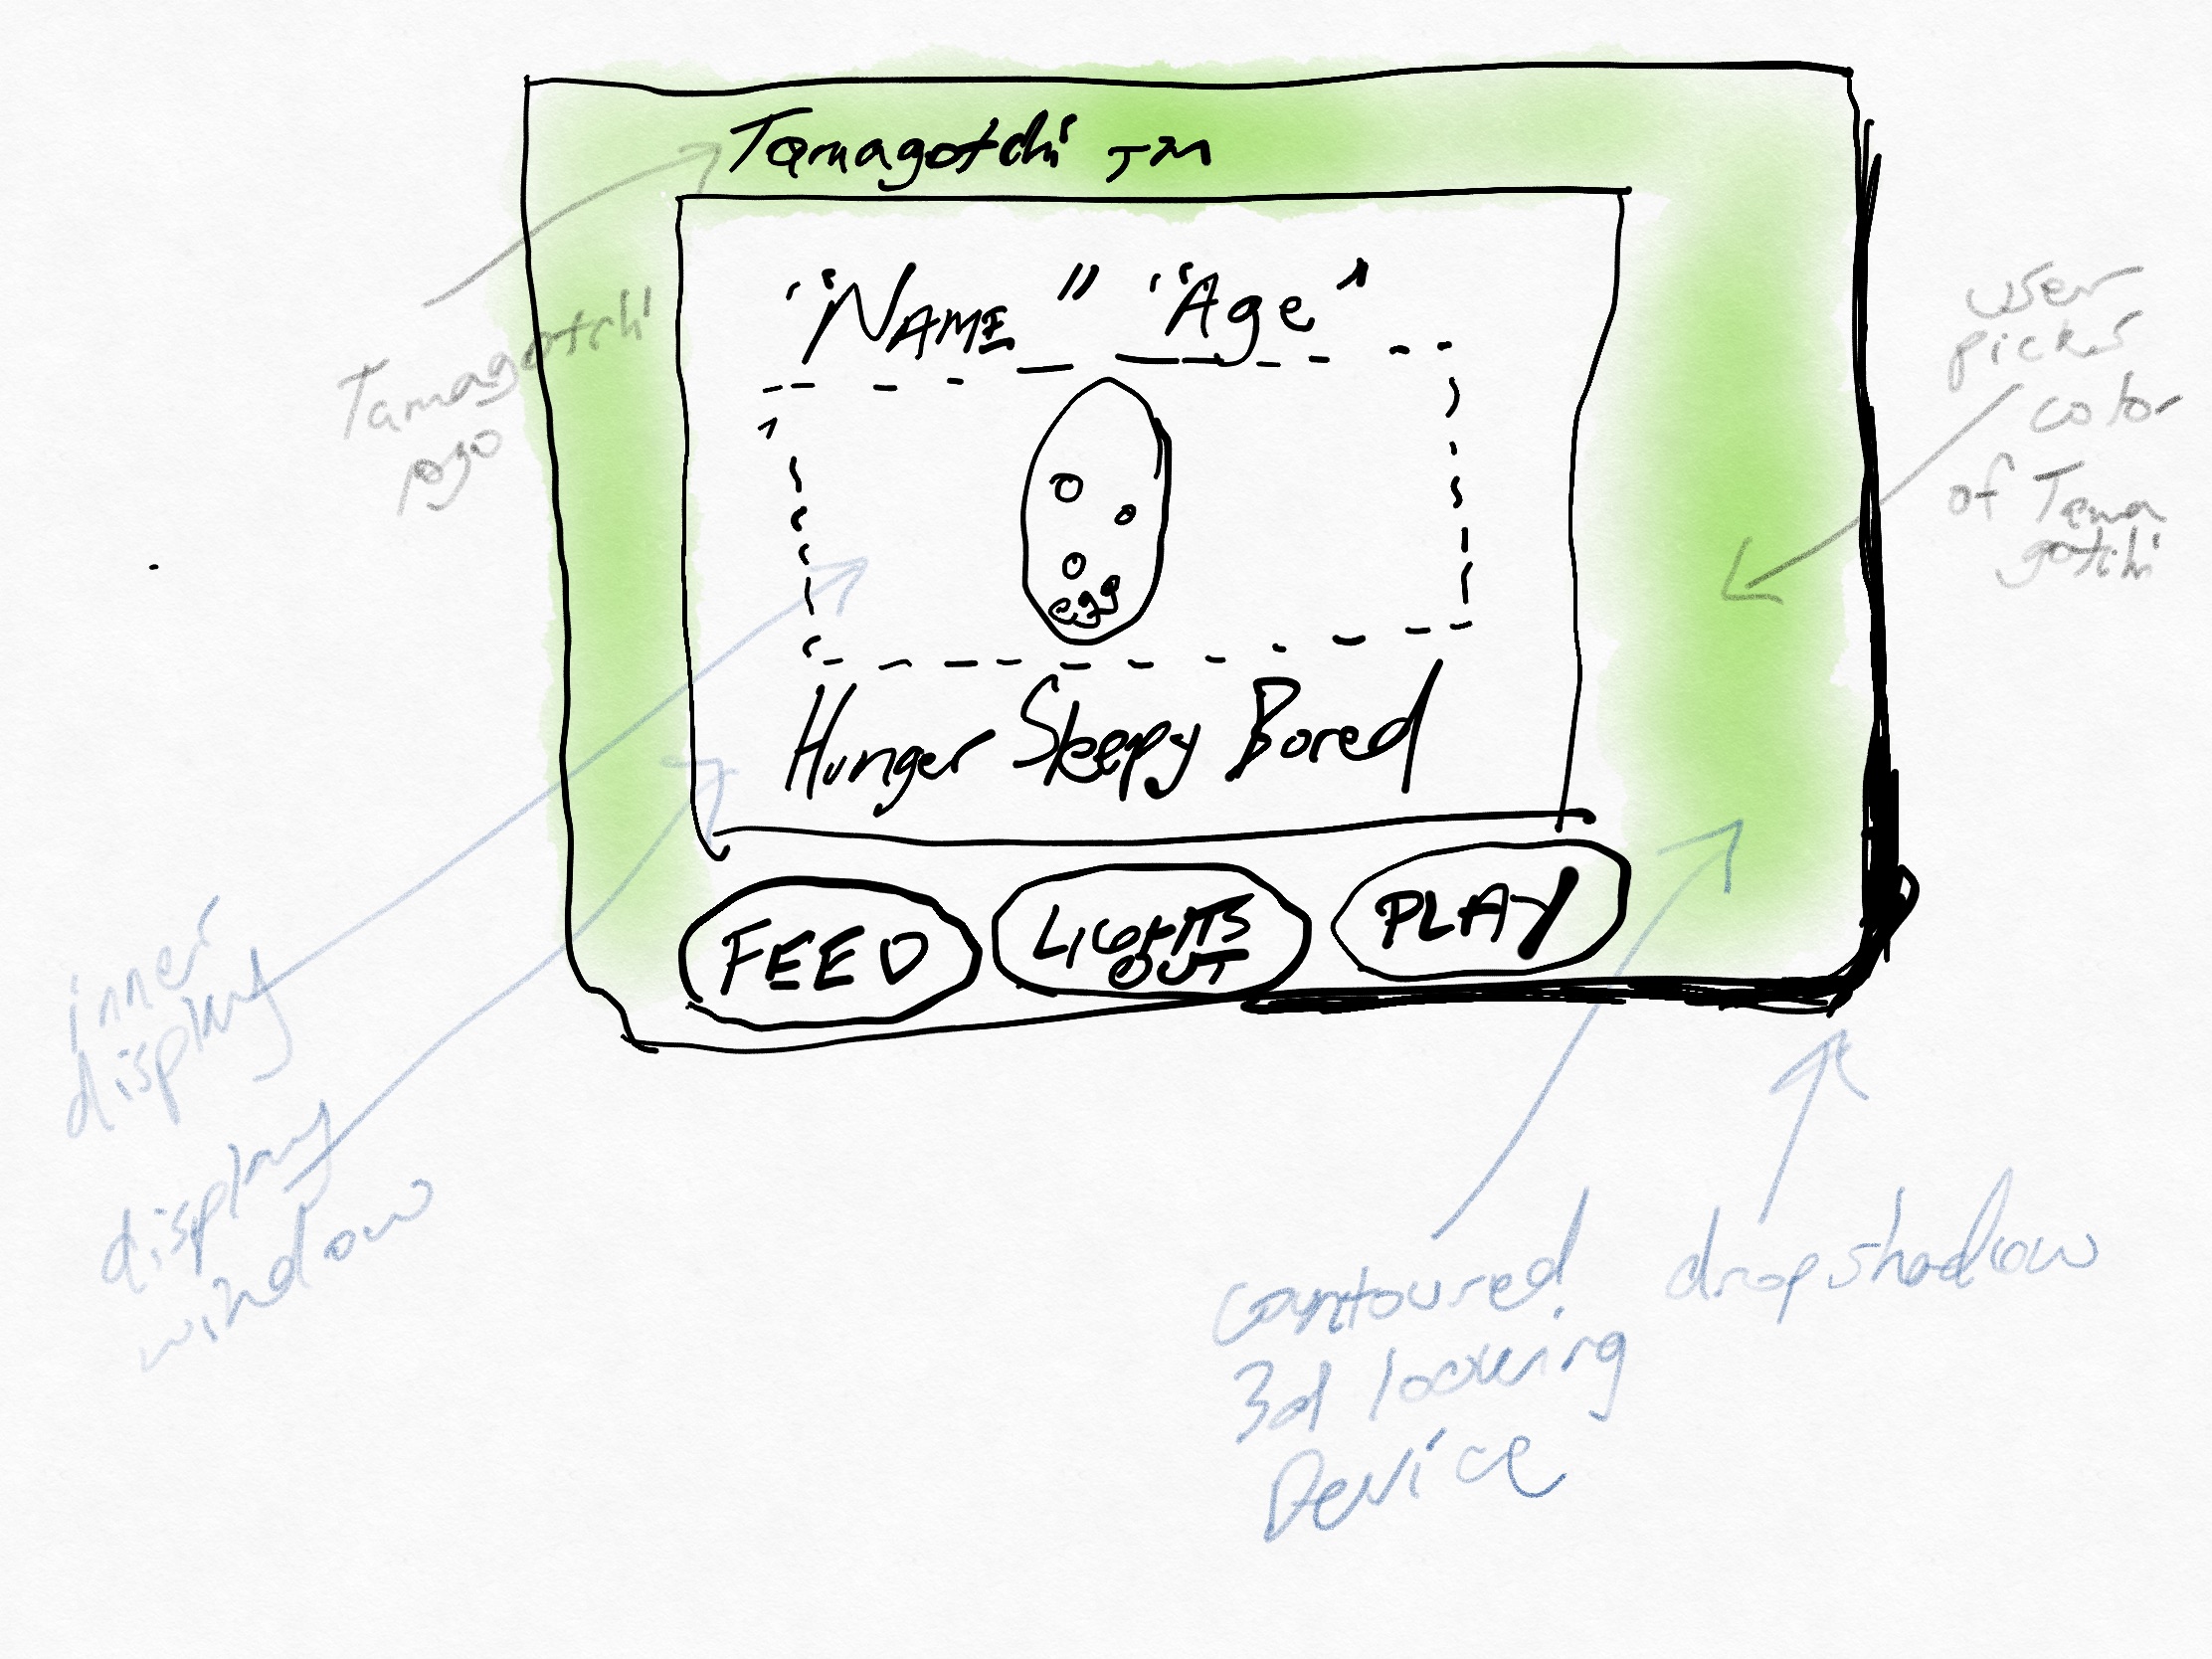 Tamagotchi TM
"NAME" "Age"
egg
Hunger Sleepy Bored
FEED
LIGHTS
OUT
PLAY
Tamagotchi
user
picks
color
of Tama
gotchi
inner
display
display
window
contoured
3d looking
Device
dropshadow